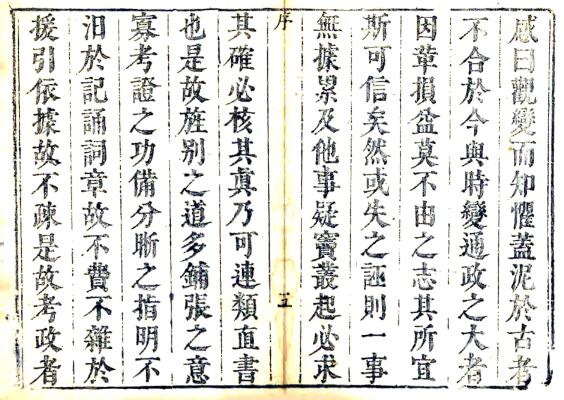 感曰觀變而知懼蓋泥於古者
不合於今與時變通政之大者
因革損益莫不由之志其所宜
斯可信矣然或失之誣則一事
無據累及他事疑竇叢起必求
序 五
其確必核其眞乃可連類直書
也是故旌别之道多鋪張之意
寡考證之功備分晰之指明不
汨於記誦詞章故不費不雜於
援引依據故不疎是故考政者